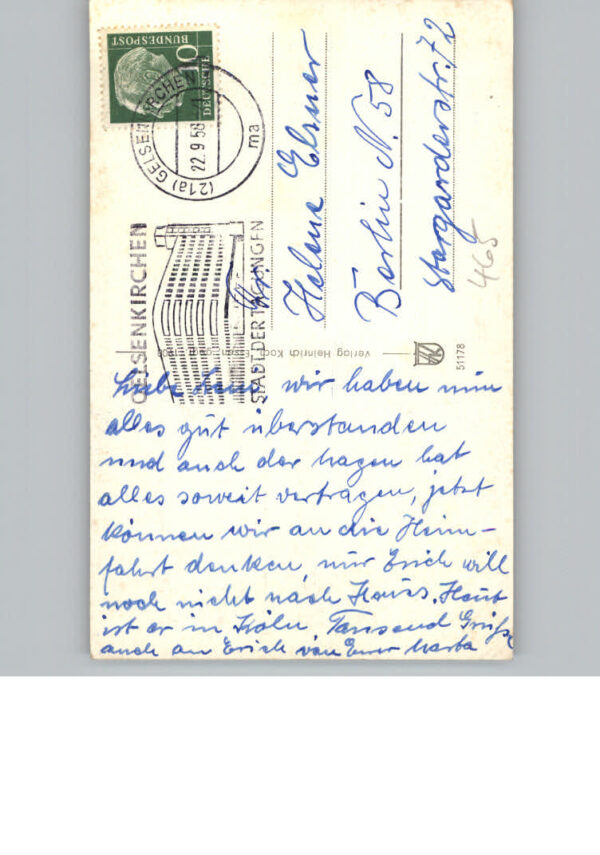 10
DEUTSCHE
BUNDESPOST
(21a) GELSENKIRCHEN 1
22.9.58
ma
GELSENKIRCHEN
STADT DER TAGUNGEN
Helene Elsner
Berlin N. 58
Stargarderstr. 72
465
Verlag Heinrich Koch, Essen
51178
Liebe wir haben nun
alles gut überstanden
und auch der Magen hat
alles soweit vertragen, jetzt
können wir an die Heim-
fahrt denken, nur Erich will
noch nicht nach Haus. Heut
ist er in Köln. Tausend Grüße
auch an Erich von Eurer